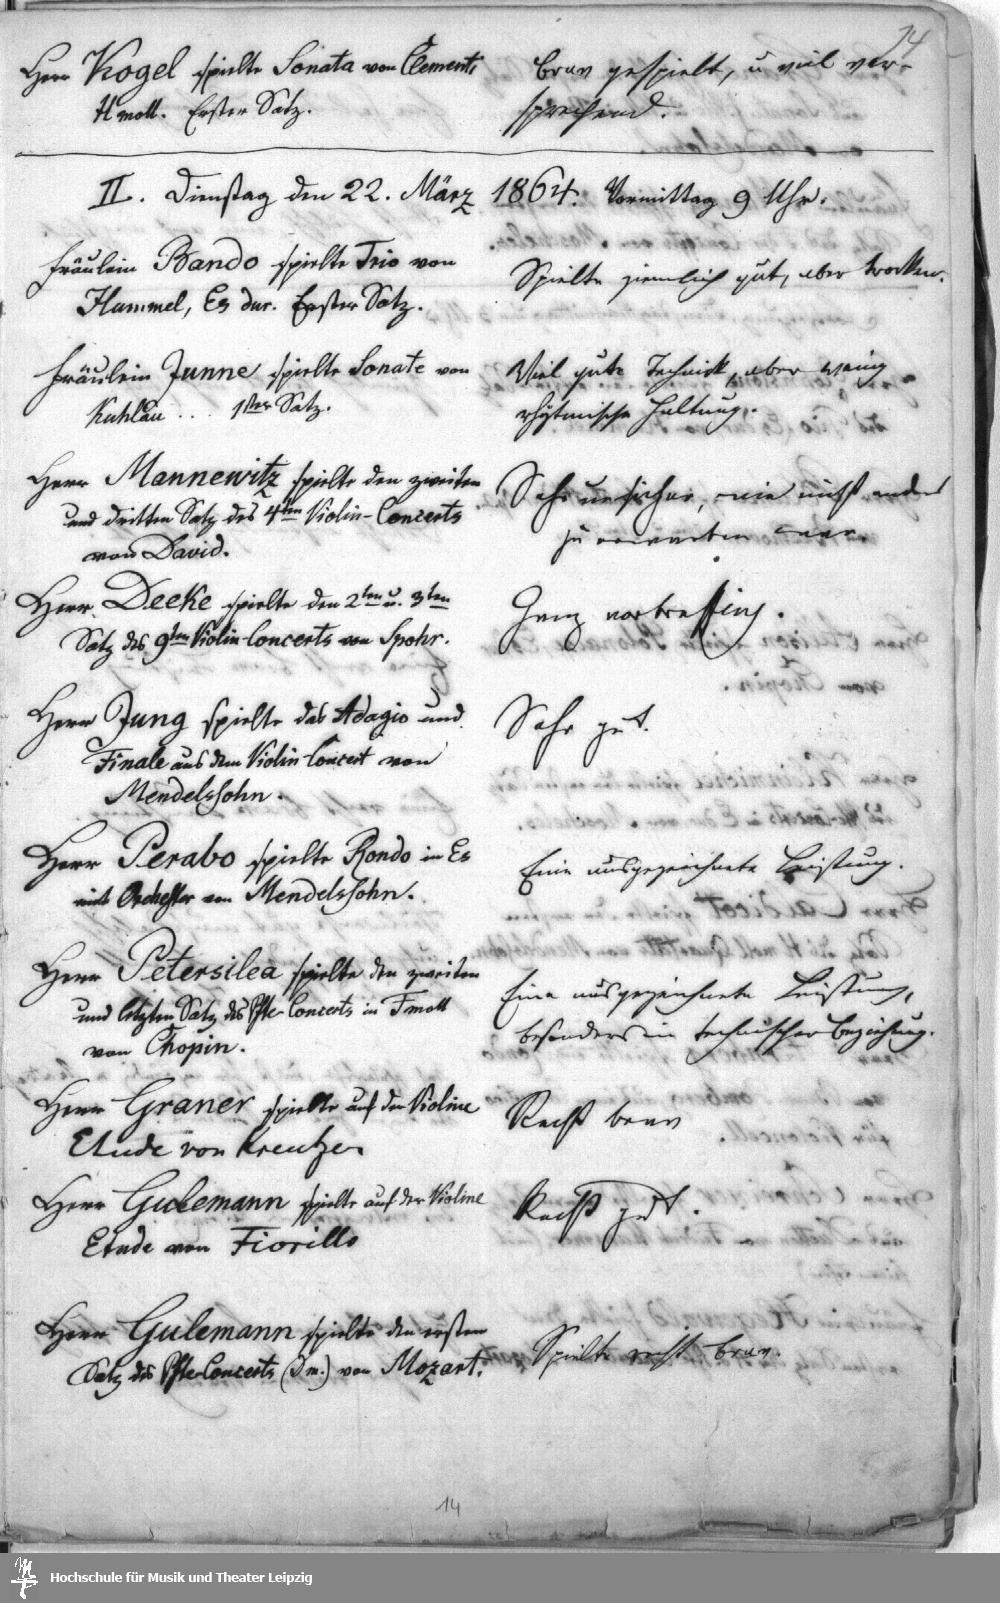 14
Herr Kogel spielte Sonata von Clementi
H moll. Erster Satz.
brav gespielt, u viel ver-
sprechend.
II. Dienstag den 22. März 1864. Vormittag 9 Uhr.
Fräulein Bando spielte Trio von
Hummel, Es dur. Erster Satz.
Spielte ziemlich gut, aber trocken.
Fräulein Junne spielte Sonate von
Kuhlau ... 1ster Satz.
Viel gute Technick, aber wenig
rhytmische Haltung.
Herr Mannewitz spielte den zweiten
und dritten Satz des 4ten Violin-Concerts
von David.
Sehr unsicher, wie nicht anders
zu erwarten war.
Herr Deeke spielte den 2ten u. 3ten
Satz des 9ten Violin-Concerts von Spohr.
Ganz vortrefflich.
Herr Jung spielte das Adagio und
Finale aus dem Violin-Concert von
Mendelssohn.
Sehr gut.
Herr Perabo spielte Rondo in Es
mit Orchester von Mendelssohn.
Eine ausgezeichnete Leistung.
Herr Petersilea spielte den zweiten
und letzten Satz des Pfte-Concerts in F moll
von Chopin.
Eine ausgezeichnete Leistung,
besonders in technischer Beziehung.
Herr Graner spielte auf der Violine
Etude von Kreutzer
Recht brav
Herr Gulemann spielte auf der Violine
Etude von Fiorillo
Recht gut.
Herr Gulemann spielte den ersten
Satz des Pfte-Concerts (D m.) von Mozart.
Spielte recht brav.
14
Hochschule für Musik und Theater Leipzig